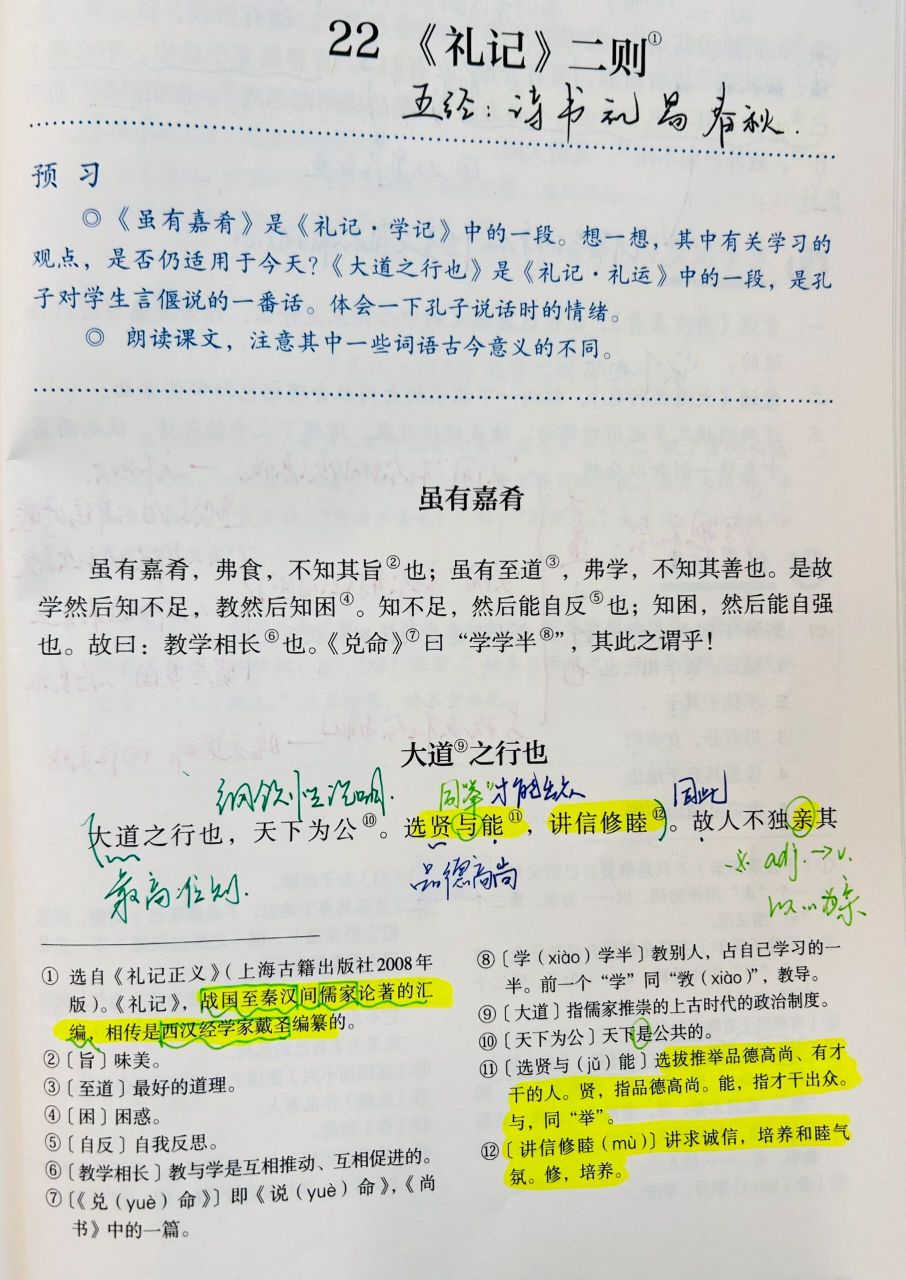 22 《礼记》二则①
五经：诗书礼易春秋.
预习
◎《虽有嘉肴》是《礼记·学记》中的一段。想一想，其中有关学习的
观点，是否仍适用于今天？《大道之行也》是《礼记·礼运》中的一段，是孔
子对学生言偃说的一番话。体会一下孔子说话时的情绪。
◎ 朗读课文，注意其中一些词语古今意义的不同。
虽有嘉肴
虽有嘉肴，弗食，不知其旨②也；虽有至道③，弗学，不知其善也。是故
学然后知不足，教然后知困④。知不足，然后能自反⑤也；知困，然后能自强
也。故曰：教学相长⑥也。《兑命》⑦曰“学学半⑧”，其此之谓乎！
大道⑨之行也
同“举” 才能出众 因此
大道之行也，天下为公⑩。选贤与能⑪，讲信修睦⑫。故人不独亲其
最高准则. 品德高尚 adj.→v.
以…为亲
① 选自《礼记正义》（上海古籍出版社2008年
版）。《礼记》，战国至秦汉间儒家论著的汇
编，相传是西汉经学家戴圣编纂的。
②〔旨〕味美。
③〔至道〕最好的道理。
④〔困〕困惑。
⑤〔自反〕自我反思。
⑥〔教学相长〕教与学是互相推动、互相促进的。
⑦〔《兑（yuè）命》〕即《说（yuè）命》，《尚
书》中的一篇。
⑧〔学（xiào）学半〕教别人，占自己学习的一
半。前一个“学”同“敩（xiào）”，教导。
⑨〔大道〕指儒家推崇的上古时代的政治制度。
⑩〔天下为公〕天下是公共的。
⑪〔选贤与（jǔ）能〕选拔推举品德高尚、有才
干的人。贤，指品德高尚。能，指才干出众。
与，同“举”。
⑫〔讲信修睦（mù）〕讲求诚信，培养和睦气
氛。修，培养。